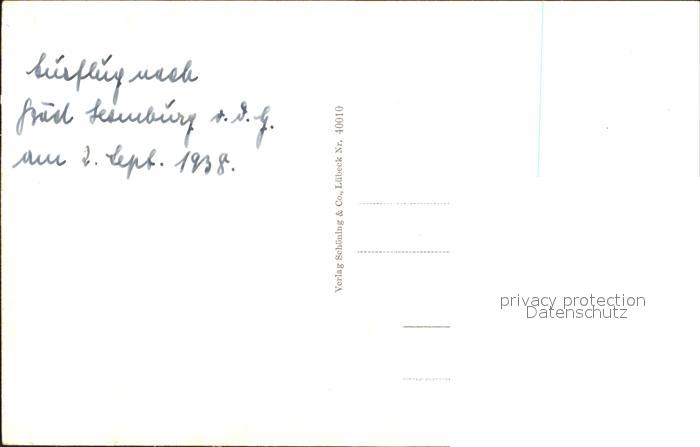 Ausflug nach
Bad Homburg v. d. H.
am 2. Sept. 1938.
Verlag Schöning & Co., Lübeck Nr. 40010
privacy protection
Datenschutz